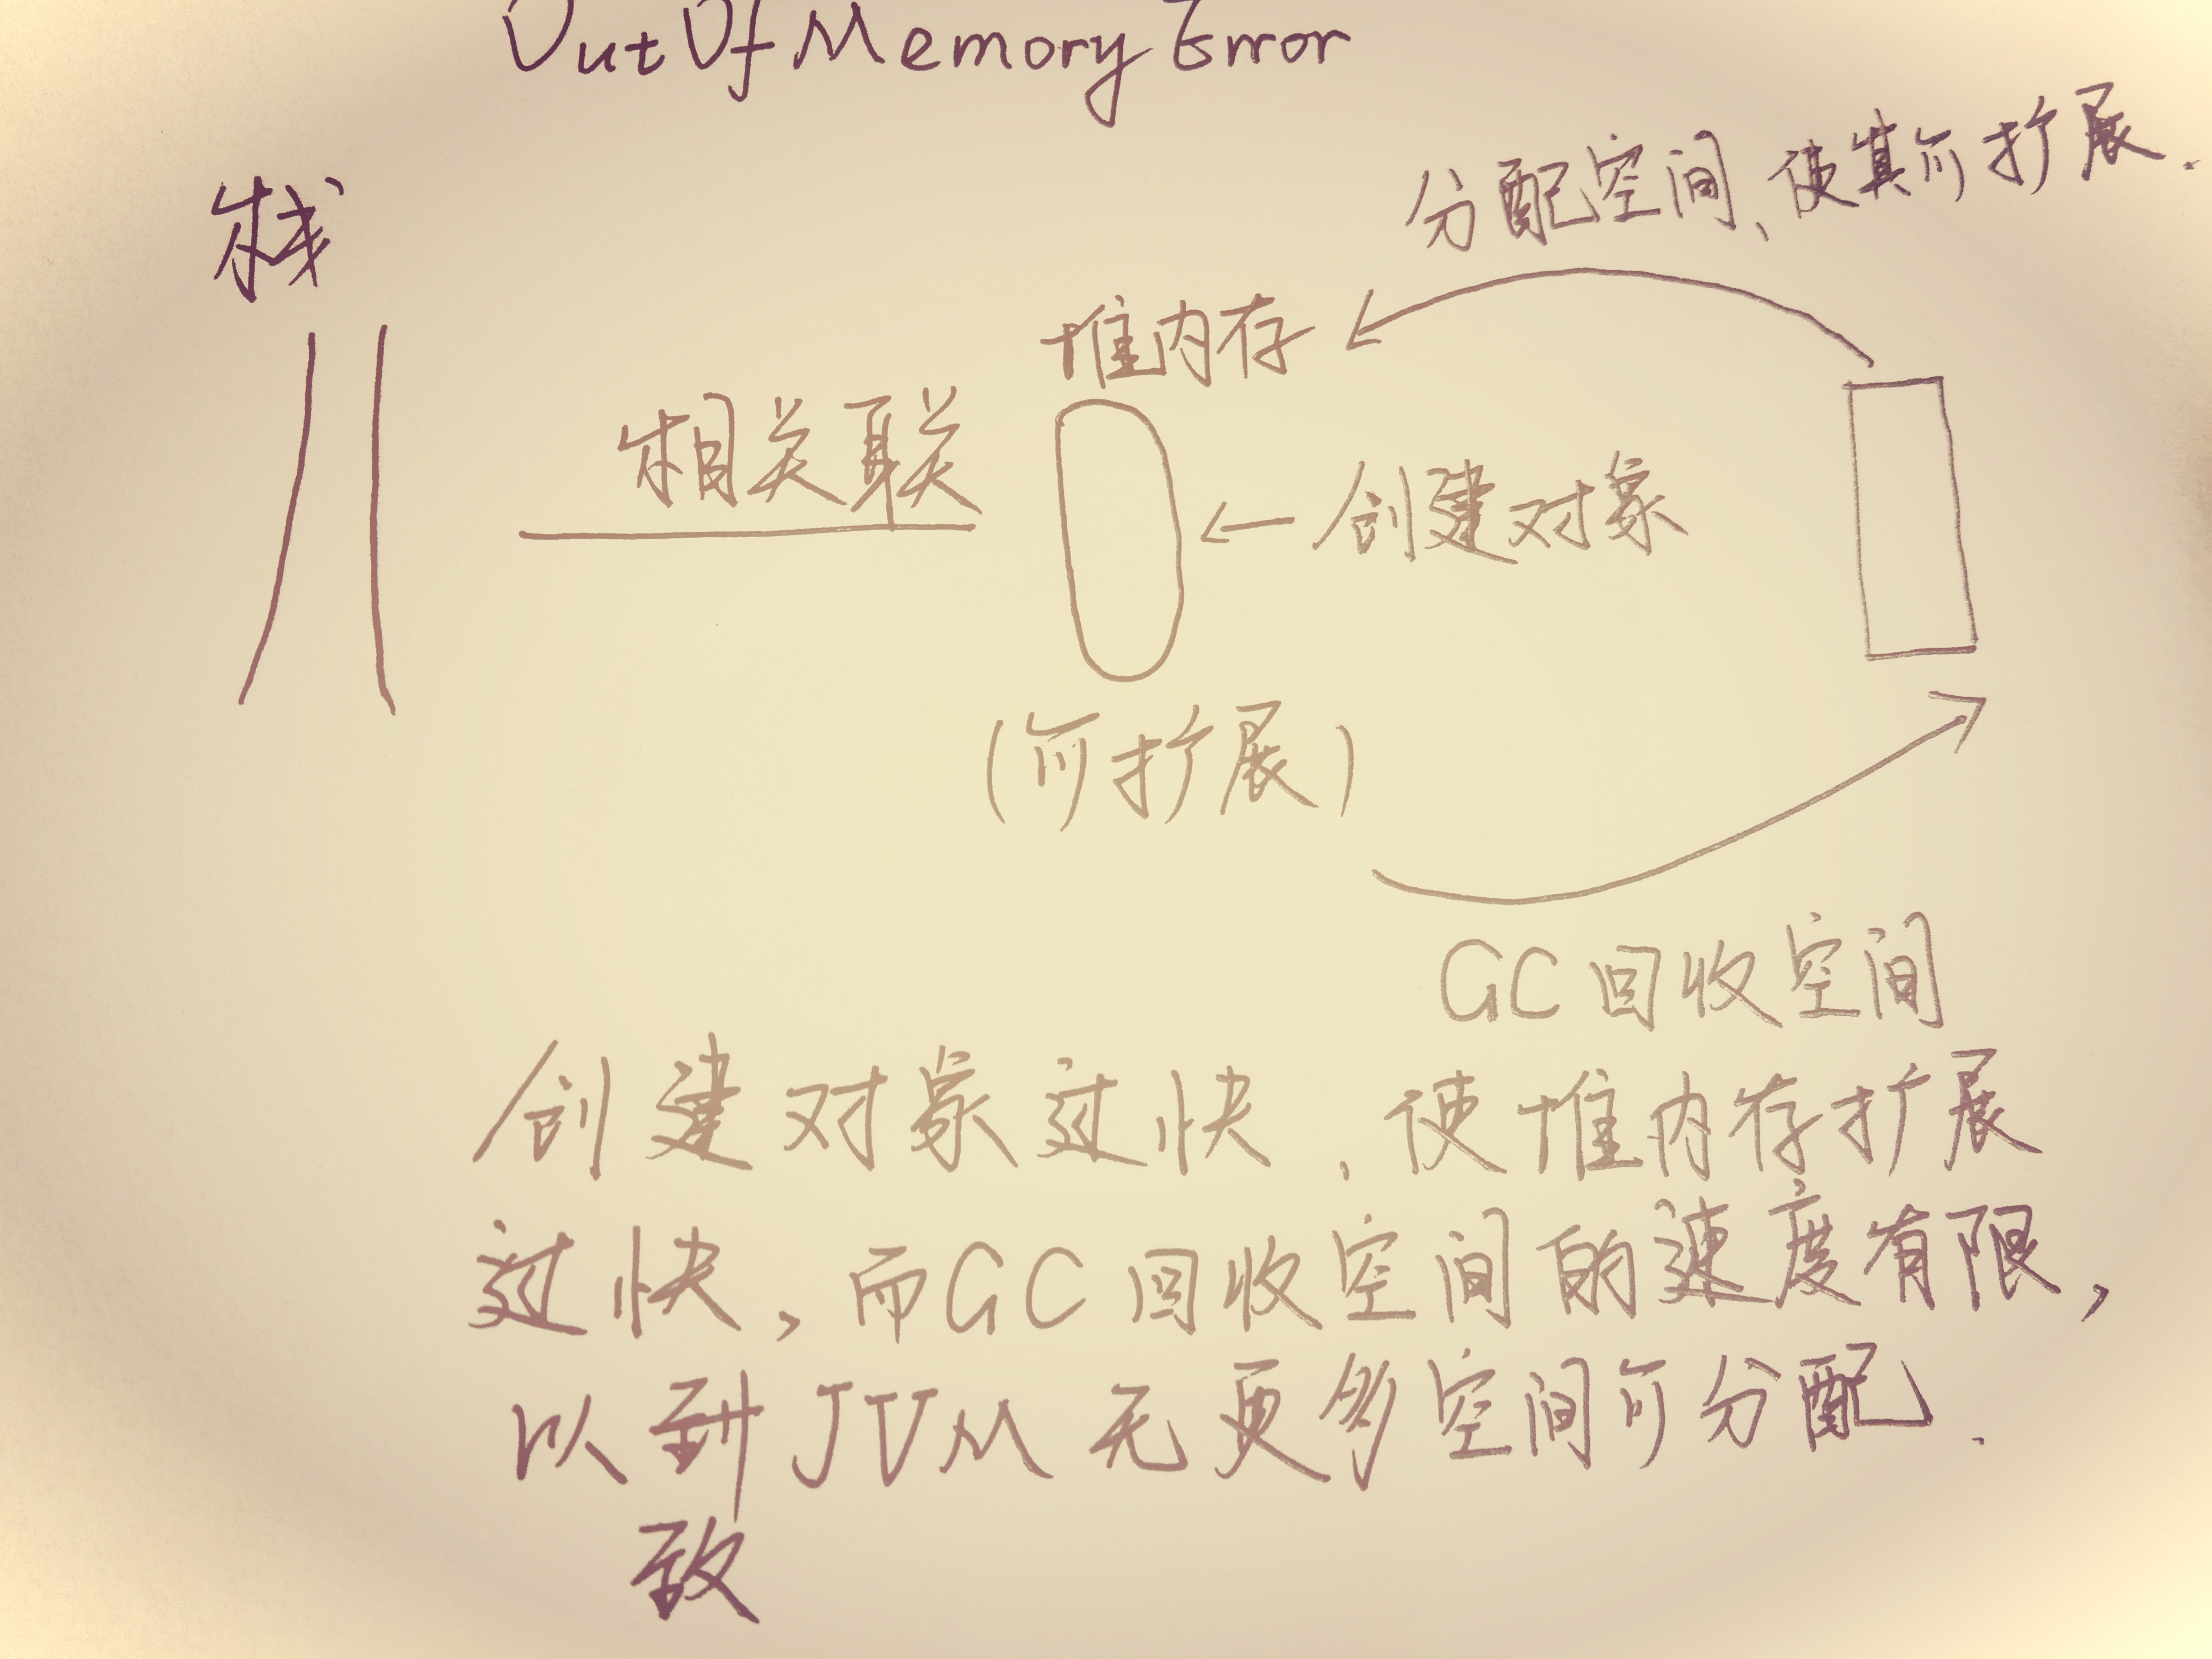 OutOfMemoryError
分配空间、使其可扩展.
栈
堆内存
相关联
创建对象
(可扩展)
GC回收空间
创建对象过快,使堆内存扩展
过快,而GC回收空间的速度有限,
以到JVM无更多空间可分配.
致